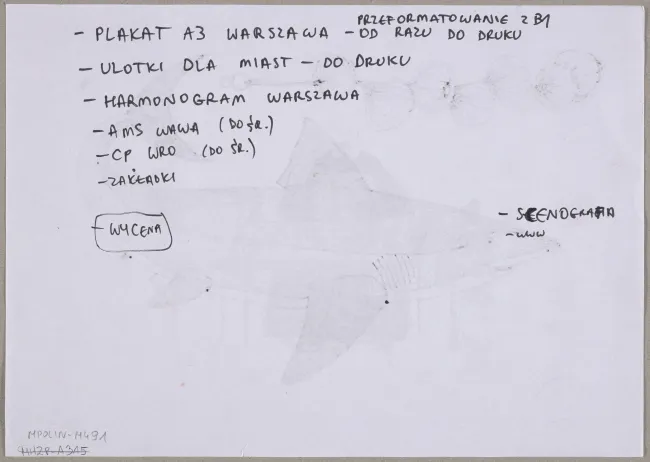 - PLAKAT A3 WARSZAWA - PRZEFORMATOWANIE Z B1
OD RAZU DO DRUKU
- ULOTKI DLA MIAST - DO DRUKU
- HARMONOGRAM WARSZAWA
- AMS WAWA (DO ŚR.)
- CP WRO (DO ŚR.)
- ZAKŁADKI
- WYCENA
- SCENOGRAFIA
- WWW
MPOLIN-M491